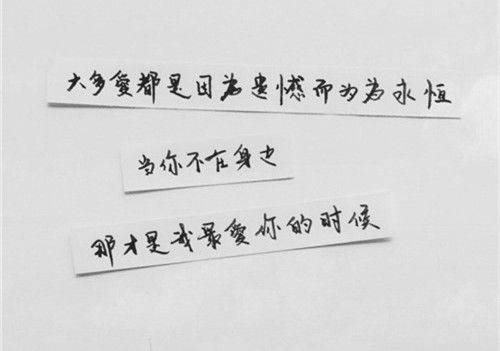 大多愛都是因为遗憾而为为永恒
当你不在身边
那才是我最愛你的时候